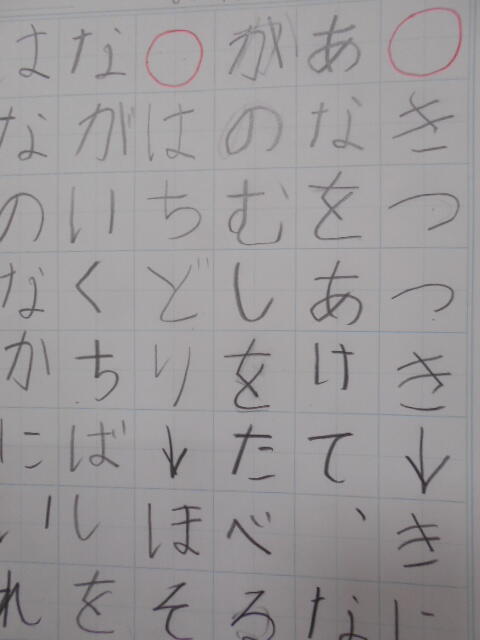 ○きつつき↓きに
あなをあけて、な
がのむしをたべる
○はちどり↓ほそ
ながいくちばしを
はなのなかにいれ